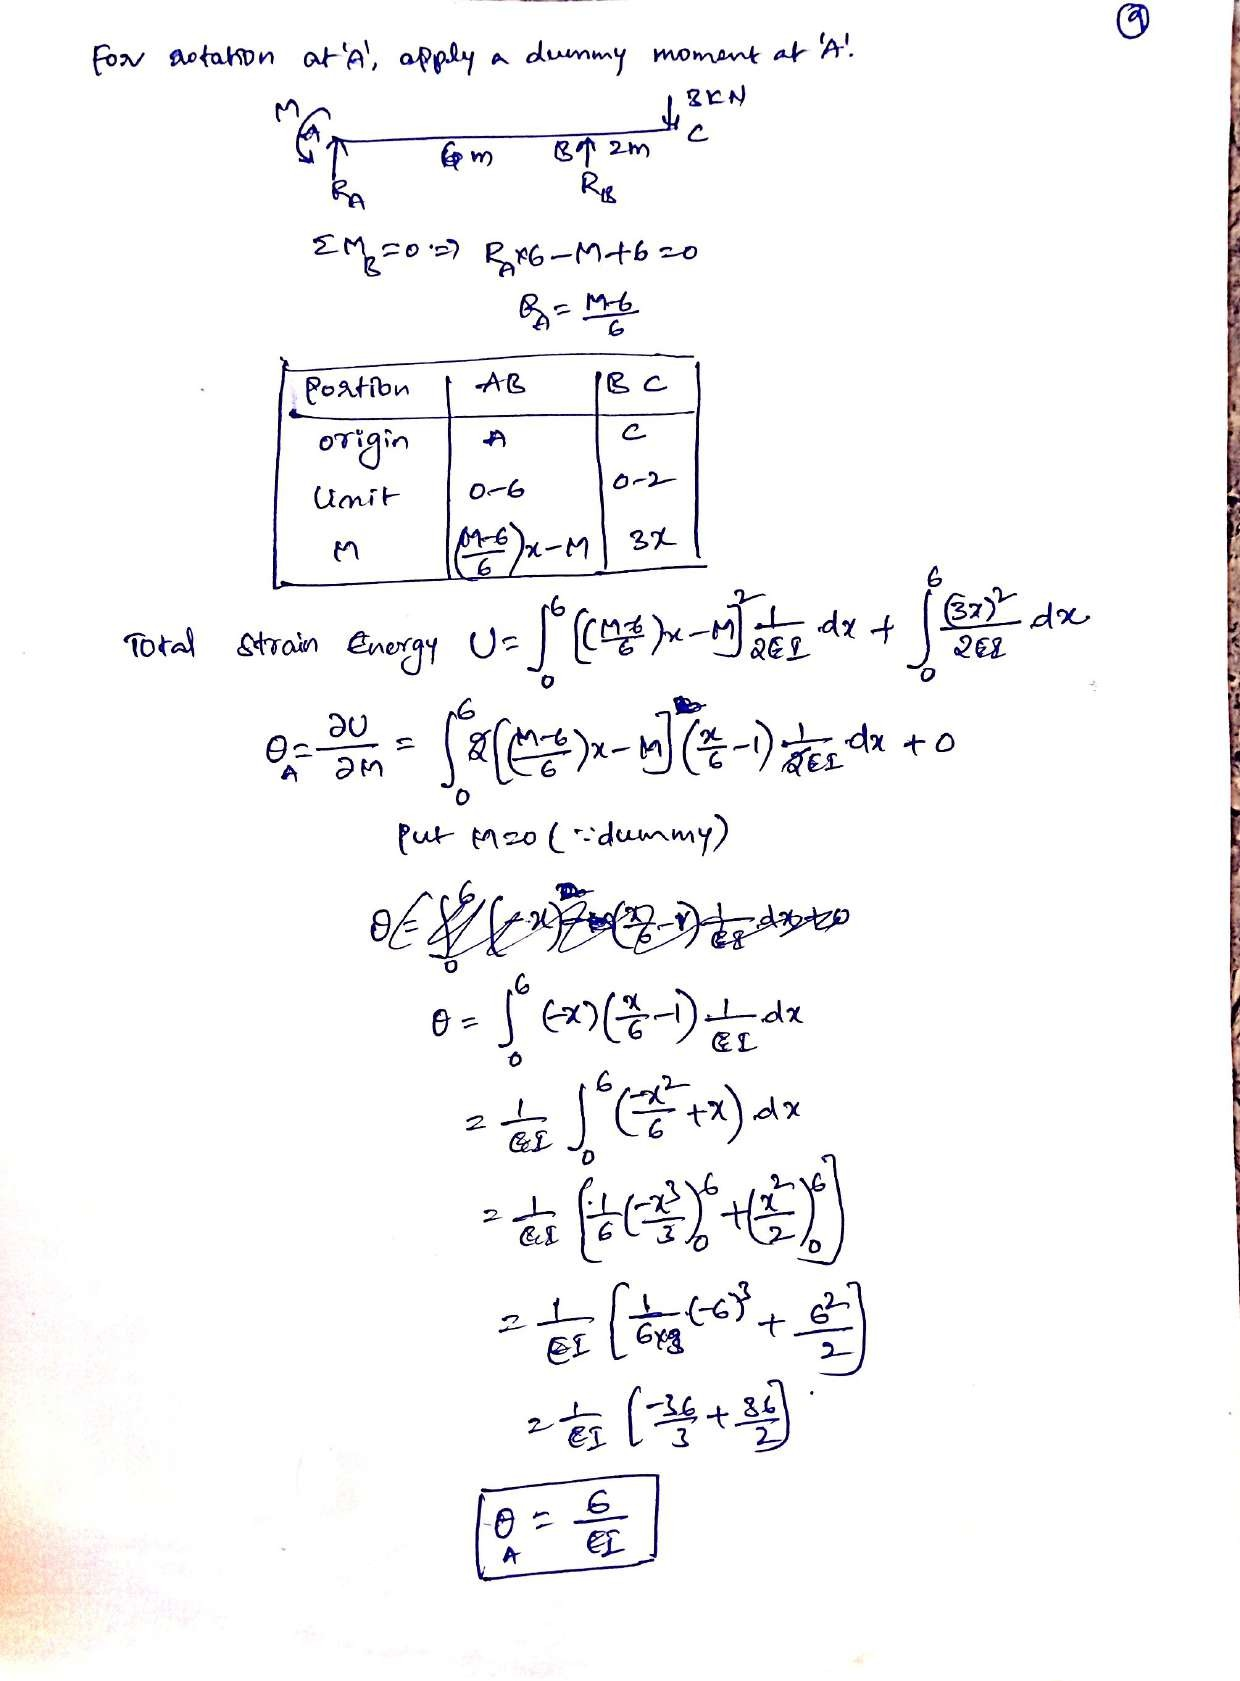 9
For rotation at 'A', apply a dummy moment at 'A'.
M 3KN
A 6m B 2m C
RA RB
ΣM_B=0 ⇒ R_A×6-M+6=0
R_A = (M-6)/6
Portion AB BC
origin A C
Limit 0-6 0-2
M ((M-6)/6)x-M 3x
Total Strain Energy U = ∫₀⁶ [((M-6)/6)x-M]² 1/2EI dx + ∫₀⁶ (3x)²/2EI dx
θ_A = ∂U/∂M = ∫₀⁶ 2[((M-6)/6)x-M] (x/6-1) 1/2EI dx + 0
Put M=0 (∵dummy)
θ = ∫₀⁶ (-x)(x/6-1) 1/EI dx
= 1/EI ∫₀⁶ (-x²/6+x) dx
= 1/EI [1/6(-x³/3)₀⁶ + (x²/2)₀⁶]
= 1/EI [1/6×3 (-6)³ + 6²/2]
= 1/EI [-36/3 + 36/2]
θ_A = 6/EI